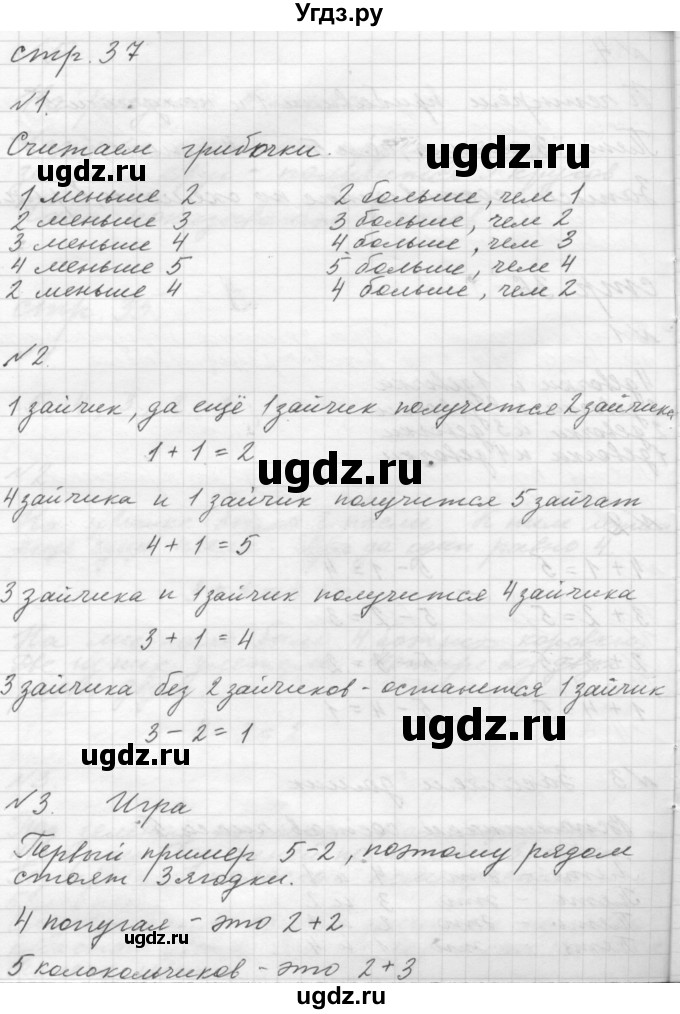 Угдз.ру
стр. 37
№1.
Считаем грибочки.
ugdz.ru
ugdz.ru
1 меньше 2 2 больше, чем 1
2 меньше 3 3 больше, чем 2
3 меньше 4 4 больше, чем 3
4 меньше 5 5 больше, чем 4
2 меньше 4 4 больше, чем 2
№2.
1 зайчик, да ещё 1 зайчик получится 2 зайчика
1 + 1 = 2
ugdz.ru
4 зайчика и 1 зайчик получится 5 зайчат
4 + 1 = 5
3 зайчика и 1 зайчик получится 4 зайчика
3 + 1 = 4
3 зайчика без 2 зайчиков - останется 1 зайчик
3 - 2 = 1
ugdz.ru
ugdz.ru
№3. Игра
Первый пример 5-2, поэтому рядом
стоят 3 ягодки.
4 попугая - это 2+2
ugdz.ru
5 колокольчиков - это 2+3
ugdz.ru